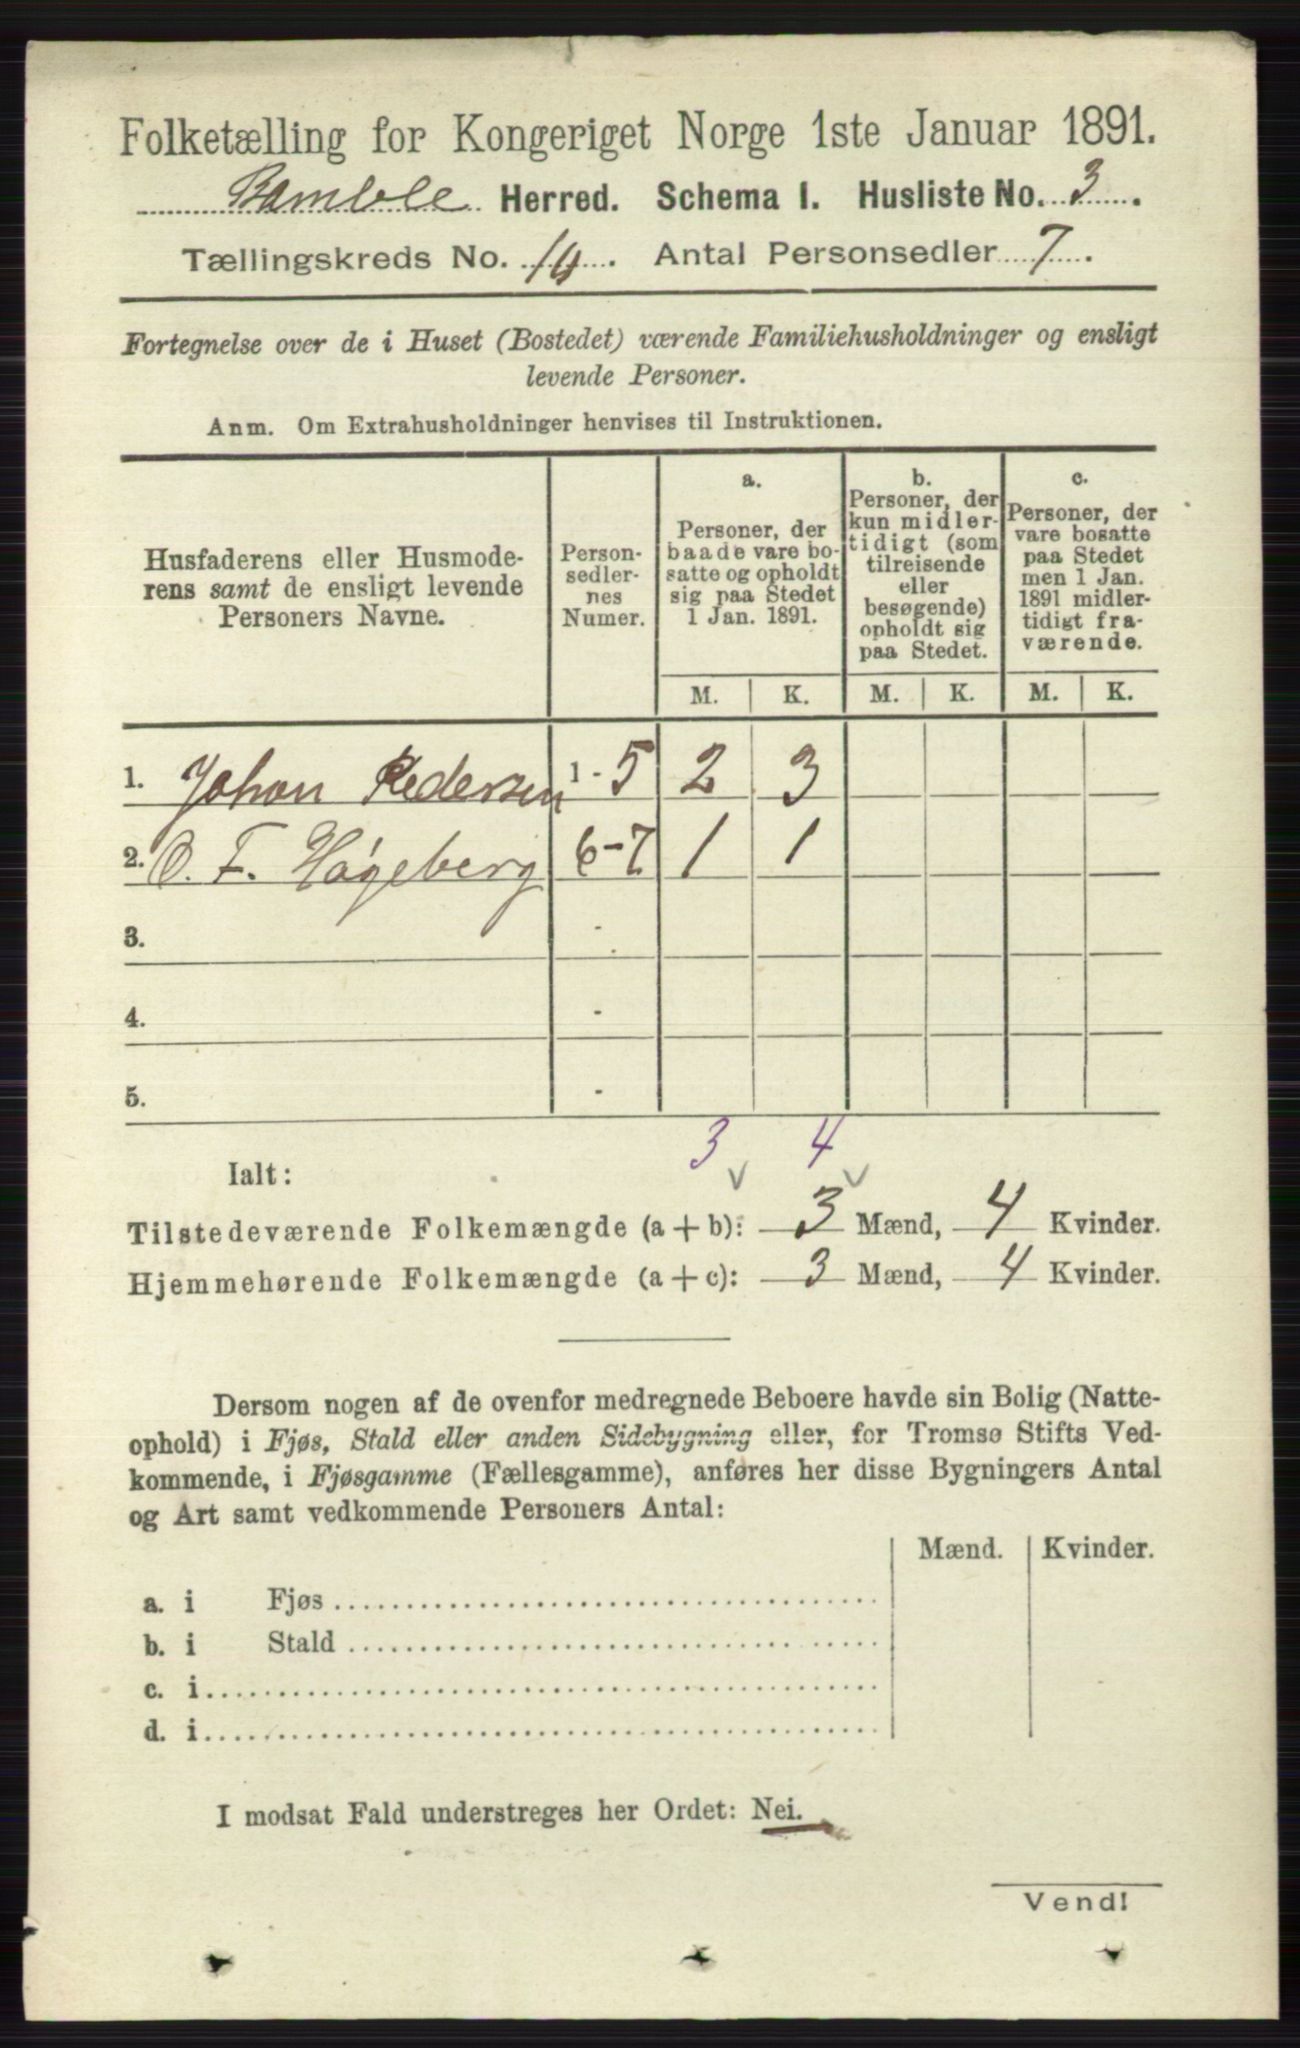 Folketælling for Kongeriget Norge 1ste Januar 1891.
Bamble Herred. Schema I. Husliste No. 3.
Tællingskreds No. 14. Antal Personsedler 7.
Fortegnelse over de i Huset (Bostedet) værende Familiehusholdninger og ensligt
levende Personer.
Anm. Om Extrahusholdninger henvises til Instruktionen.
Husfaderens eller Husmode-
rens samt de ensligt levende
Personers Navne.
Person-
sedler-
nes
Numer.
a.
Personer, der
baade vare bo-
satte og opholdt
sig paa Stedet
1 Jan. 1891.
b.
Personer, der
kun midler-
tidigt (som
tilreisende
eller
besøgende)
opholdt sig
paa Stedet.
c.
Personer, der
vare bosatte
paa Stedet
men 1 Jan.
1891 midler-
tidigt fra-
værende.
M. K. M. K. M. K.
1. Johan Pedersen 1 - 5 2 3
2. O. F. Høgeberg 6-7 1 1
3. -
4. -
5. -
3 4
Ialt:
Tilstedeværende Folkemængde (a + b): 3 Mænd, 4 Kvinder.
Hjemmehørende Folkemængde (a + c): 3 Mænd, 4 Kvinder.
Dersom nogen af de ovenfor medregnede Beboere havde sin Bolig (Natte-
ophold) i Fjøs, Stald eller anden Sidebygning eller, for Tromsø Stifts Ved-
kommende, i Fjøsgamme (Fællesgamme), anføres her disse Bygningers Antal
og Art samt vedkommende Personers Antal:
Mænd. Kvinder.
a. i Fjøs
b. i Stald
c. i
d. i
I modsat Fald understreges her Ordet: Nei.
Vend!